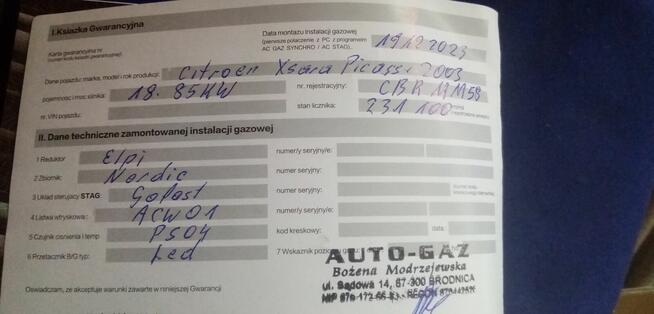 I.Książka Gwarancyjna
Data montażu instalacji gazowej
(pierwsze połączenie z PC z programem
AC GAZ SYNCHRO / AC STAG)
19/12 2023
Karta gwarancyjna nr
Dane pojazdu: marka, model i rok produkcji: Citroen Xsara Picasso 2003
pojemność i moc silnika: 18. 85KW nr. rejestracyjny: CBR MM58
nr. VIN pojazdu: stan licznika: 231 100
II. Dane techniczne zamontowanej instalacji gazowej
1 Reduktor Elpi numer/y seryjny/e:
2 Zbiornik: Nordic numer seryjny:
3 Układ sterujący STAG: Gofast numer seryjny:
4 Listwa wtryskowa: ACW01 numer/y seryjny/e:
5 Czujnik ciśnienia i temp PS04 kod kreskowy: data:
6 Przełącznik B/G typ: Led 7 Wskaźnik
AUTO-GAZ
Bożena Modrzejewska
ul. Sądowa 14, 87-300 BRODNICA
Oświadczam, że akceptuje warunki zawarte w niniejszej Gwarancji